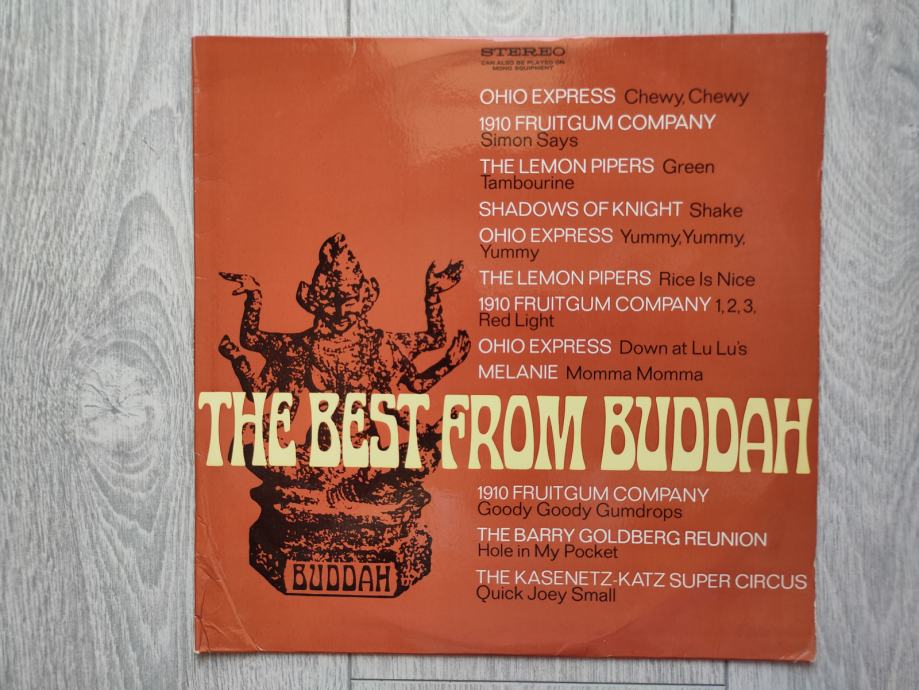 STEREO
CAN ALSO BE PLAYED ON
MONO EQUIPMENT
OHIO EXPRESS Chewy, Chewy
1910 FRUITGUM COMPANY
Simon Says
THE LEMON PIPERS Green
Tambourine
SHADOWS OF KNIGHT Shake
OHIO EXPRESS Yummy, Yummy,
Yummy
THE LEMON PIPERS Rice Is Nice
1910 FRUITGUM COMPANY 1, 2, 3,
Red Light
OHIO EXPRESS Down at Lu Lu's
MELANIE Momma Momma
THE BEST FROM BUDDAH
1910 FRUITGUM COMPANY
Goody Goody Gumdrops
THE BARRY GOLDBERG REUNION
Hole in My Pocket
THE KASENETZ-KATZ SUPER CIRCUS
Quick Joey Small
BUDDAH